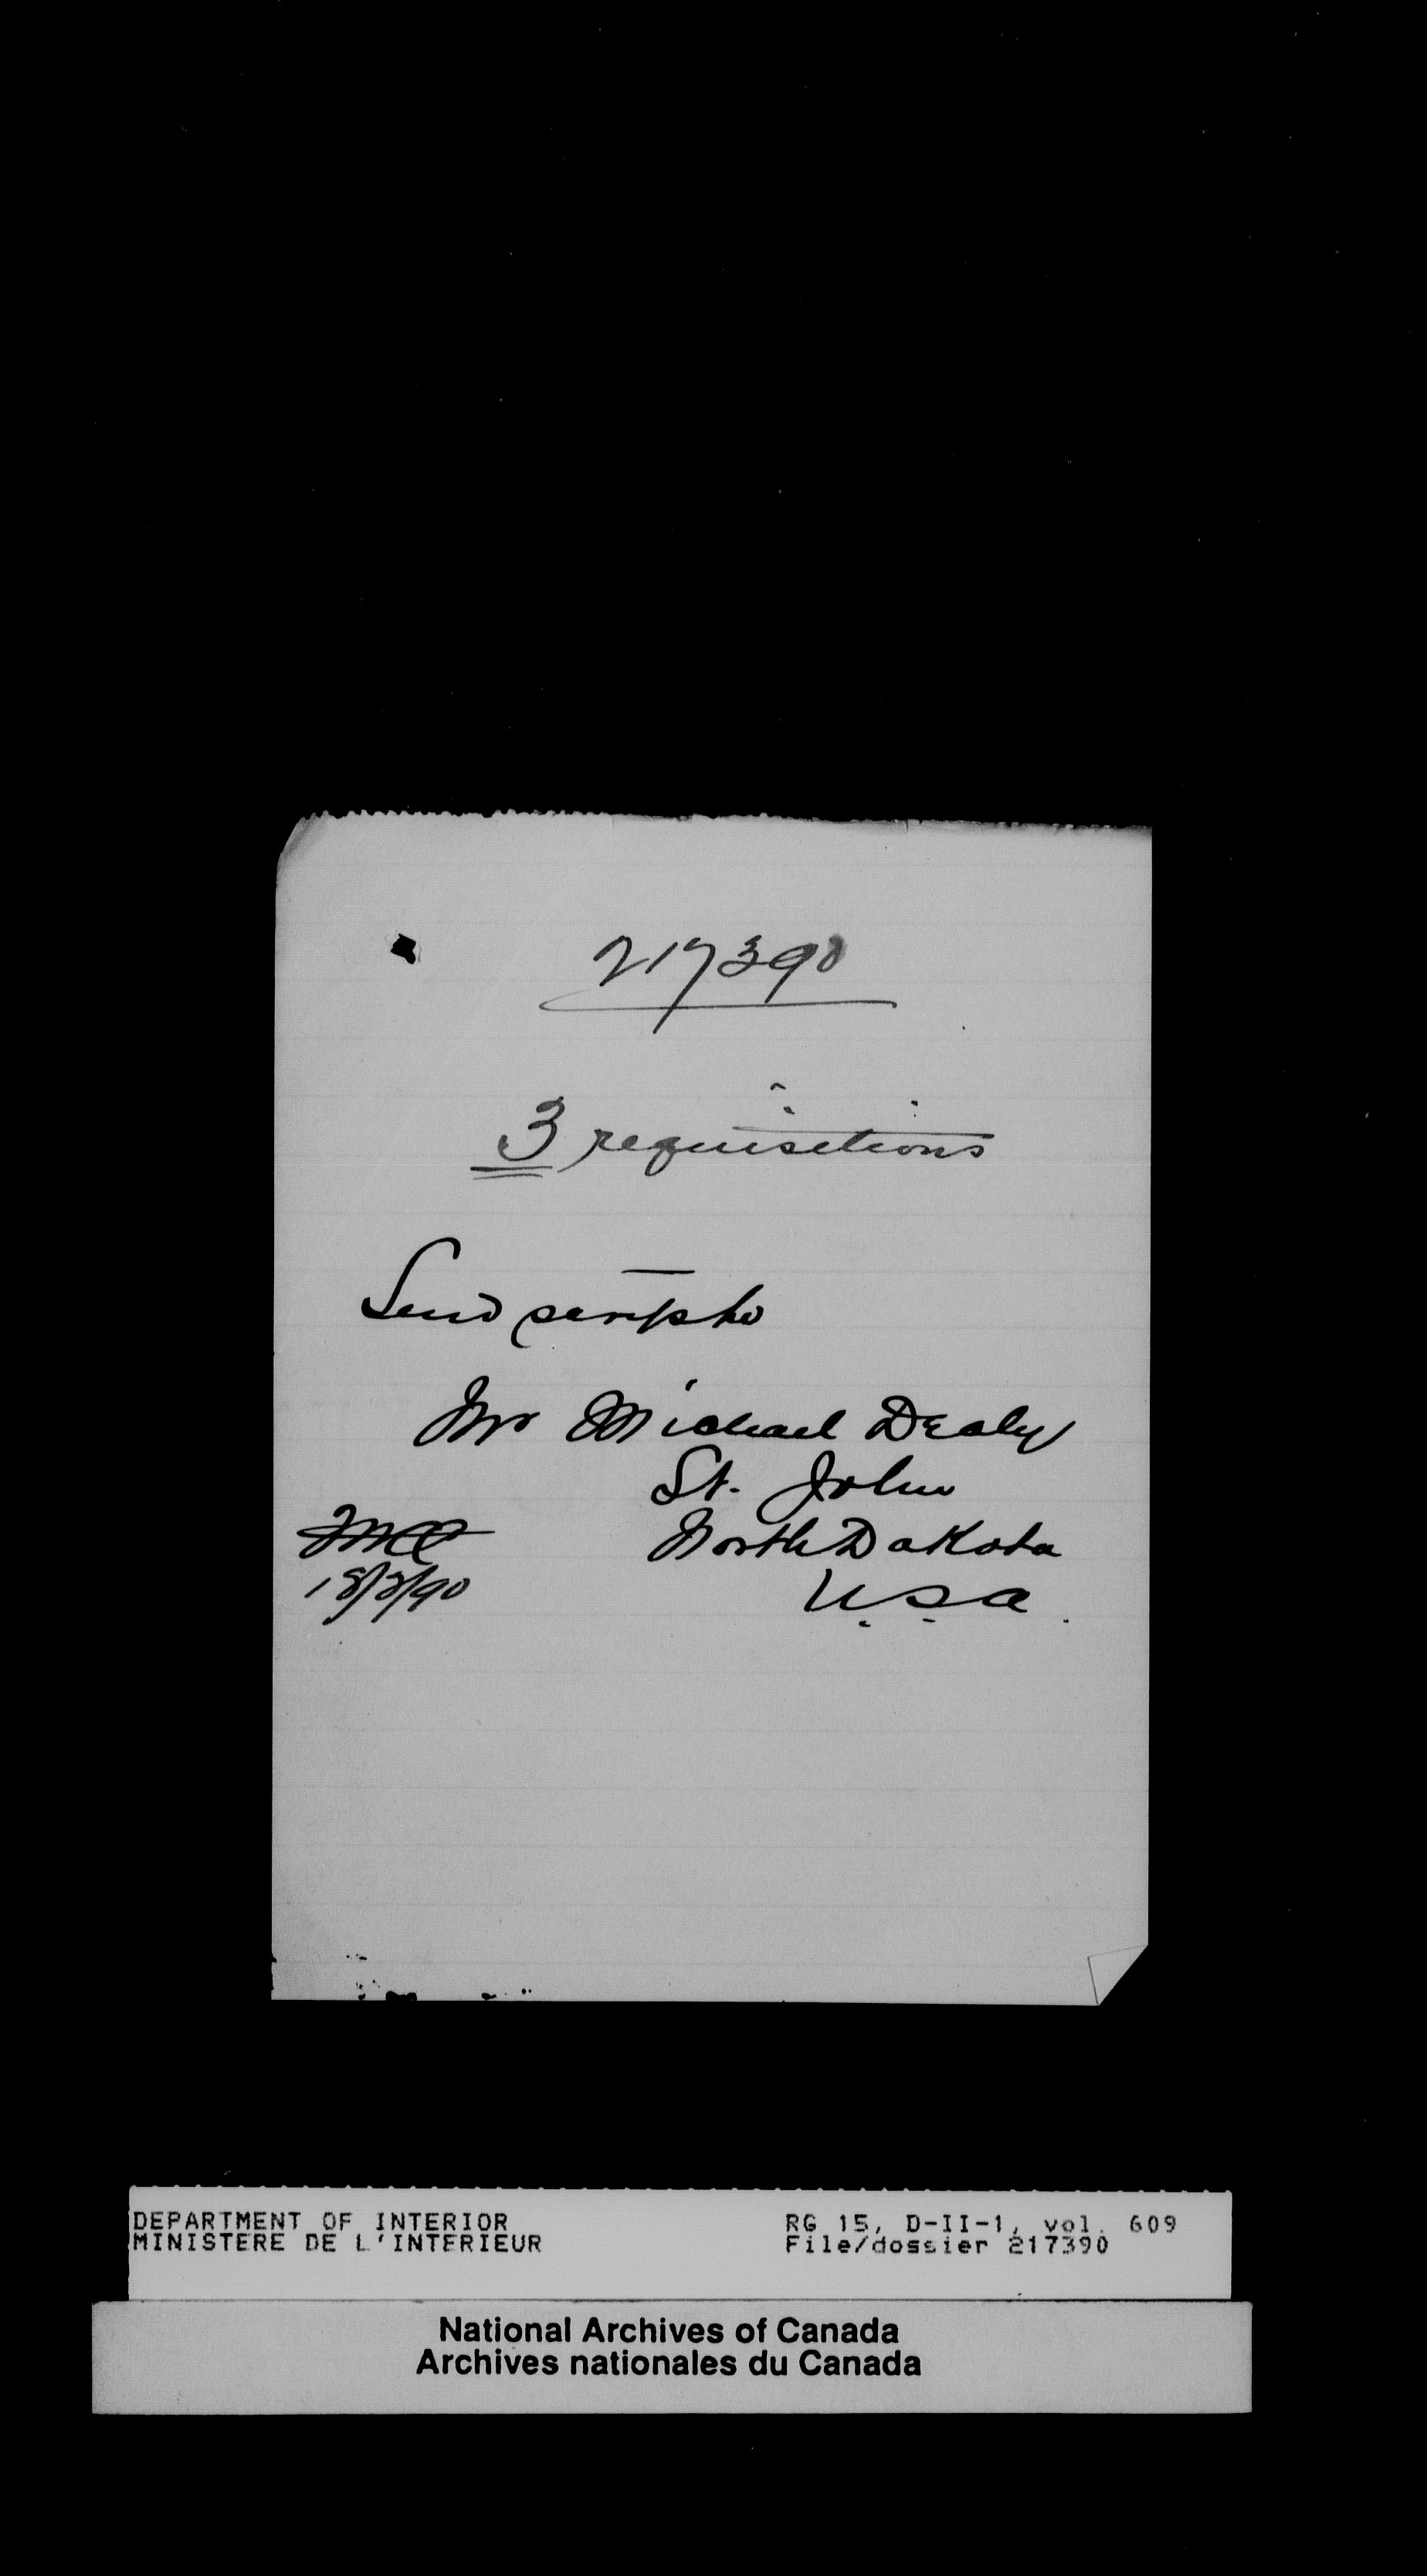 217390
3 requisitions
Send scrip to
Mr Michael Dealy
St. John
North Dakota
18/3/90
U.S.A.
DEPARTMENT OF INTERIOR
MINISTERE DE L'INTERIEUR
RG 15, D-II-1, vol. 609
File/dossier 217390
National Archives of Canada
Archives nationales du Canada